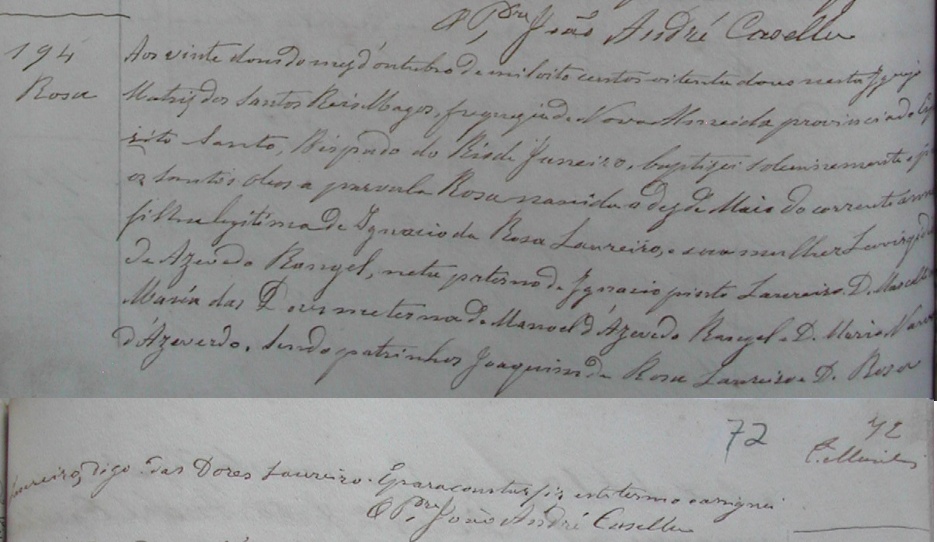 O P.re João André Casella
194
Rosa
Aos vinte dous do mez d'outubro de mil oito centos oitenta dous nesta Igreja
Matriz dos Santos Reis Magos, freguezia de Nova Almeida provincia do Esp
irito Santo, Bispado do Rio de Janeiro, baptizei solemnemente e
os santos oleos a parvula Rosa nascida a dez de Maio do corrente anno
filha legitima de Ignacio da Rosa Laureiro, e sua mulher
de Azevedo Rangel, neta paterna de Ignacio pinto Laureiro D.
Maria das D materna de Manoel d'Azevedo Rangel e D. Maria
d'Azevedo. Sendo patrinhos Joaquim da Rosa Laureiro e D. Rosa
72
72
Laureiro, digo das Dores Laureiro. E para constar fiz este termo e asignei
O P.re João André Casella